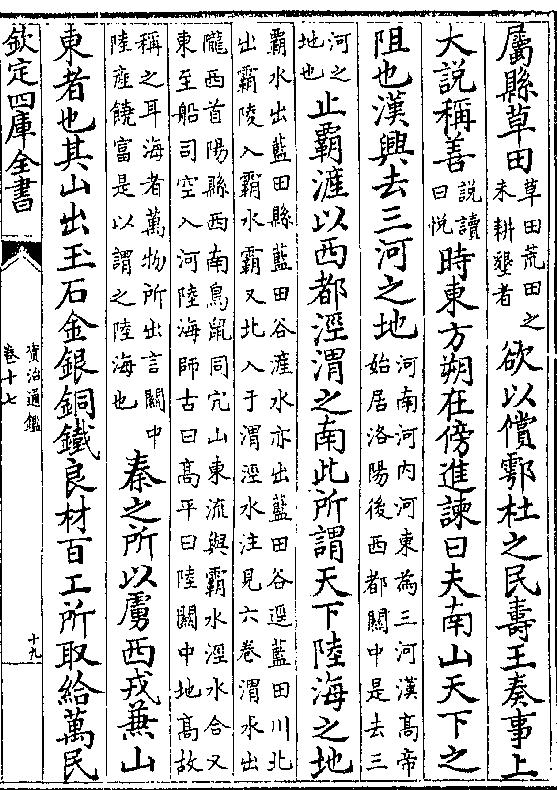 屬縣草田草田荒田之未耕墾者欲以償鄠杜之民壽王奏事上
大說稱善說讀曰悅時東方朔在傍進諫曰夫南山天下之
阻也漢興去三河之地河南河內河東為三河漢高帝始居洛陽後西都關中是去三
河之地也止霸滻以西都涇渭之南此所謂天下陸海之地
霸水出藍田縣藍田谷滻水亦出藍田谷逕藍田川北出霸陵入霸水霸又北入于渭涇水注見六卷渭水出
隴西首陽縣西南鳥鼠同宂山東流與霸水涇水合又東至船司空入河陸海師古曰高平曰陸關中地高故
稱之耳海者萬物所出言關中陸産饒富是以謂之陸海也秦之所以虜西戎兼山
東者也其山出玉石金銀銅鐵良材百工所取給萬民
欽定四庫全書
資治通鑑
卷十七
十九